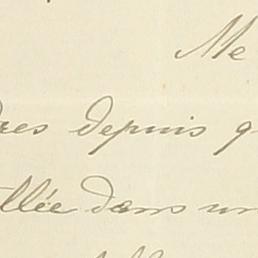 Me
res depuis q
llée dans un